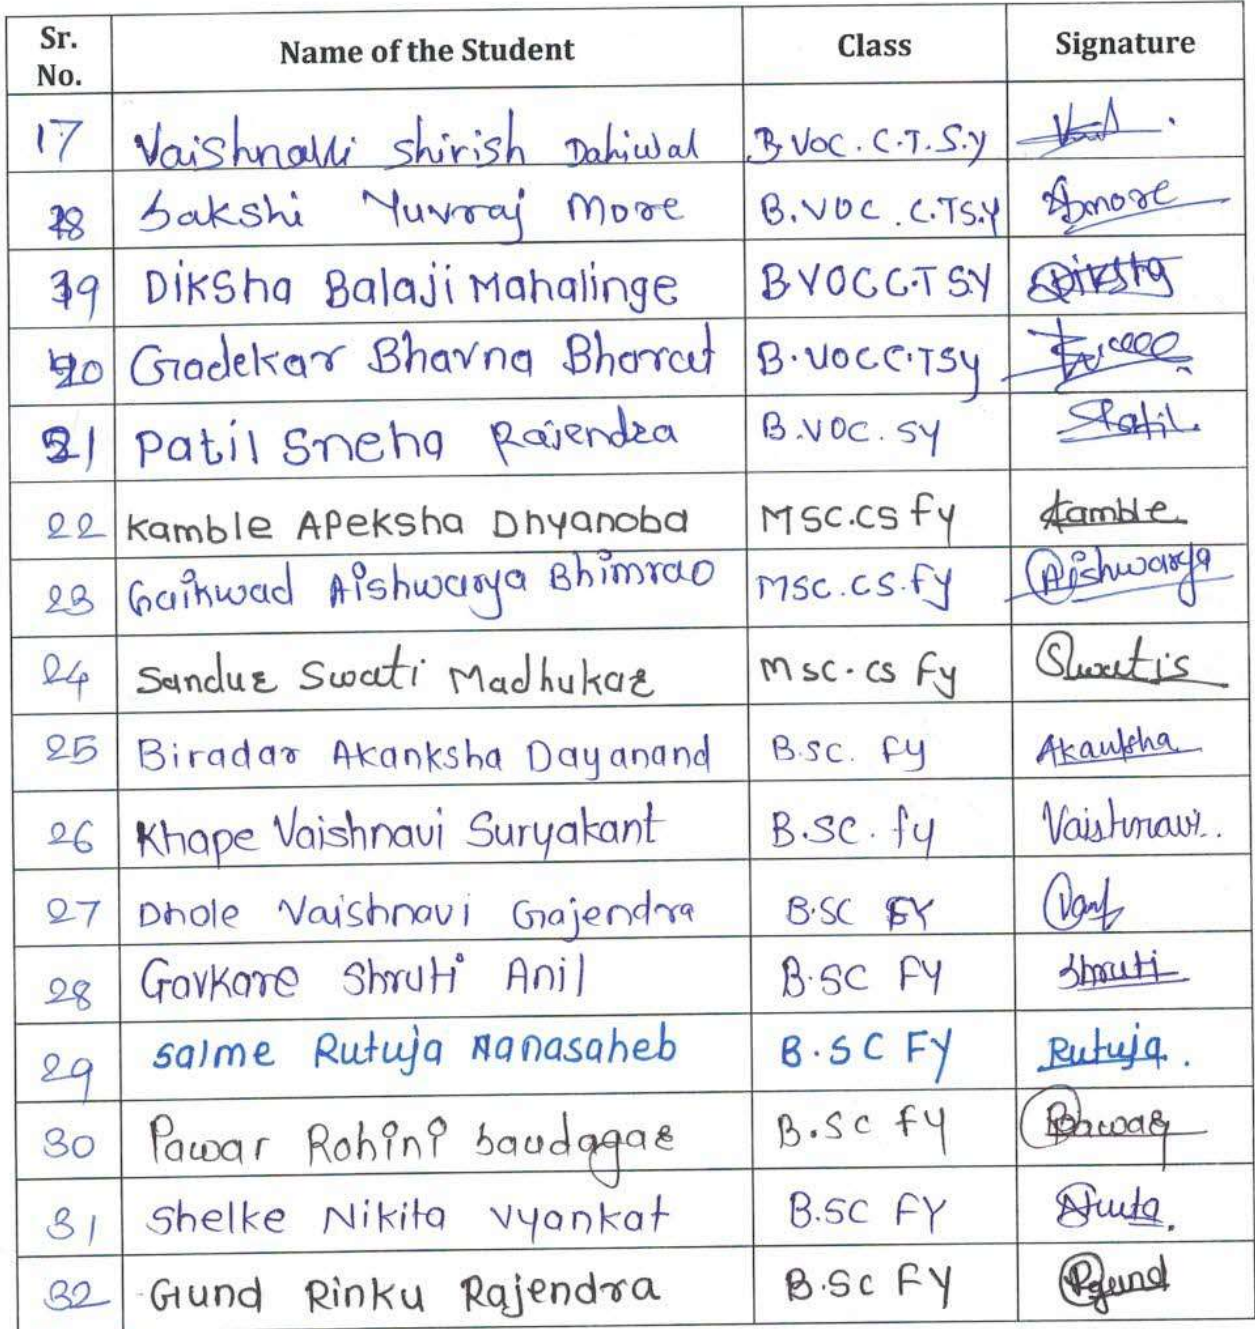 Sr. No. Name of the Student Class Signature
17 Vaishnavi Shirish Dahiwal B.Voc. C.T. S.y
18 Sakshi Yuvraj More B.VOC. C.TS.Y Smore
19 Diksha Balaji Mahalinge B.VOC C.T S.Y Diksha
20 Gadekar Bhavna Bharat B.VOC C.T Sy
21 Patil Sneha Rajendra B.VOC. SY SPatil
22 Kamble APeksha Dhyanoba MSC.CS fy Kamble
23 Gaikwad Aishwarya Bhimrao MSC.CS.fy Aishwarya
24 Sandur Swati Madhukar MSC.CS fy Swatis
25 Biradar Akanksha Dayanand B.SC. fy Akanksha
26 Khape Vaishnavi Suryakant B.SC. fy Vaishnavi.
27 Dhole Vaishnavi Gajendra B.SC FY
28 Govkare Shruti Anil B.SC FY Shruti
29 Salme Rutuja Nanasaheb B.SC FY Rutuja.
30 Pawar Rohini Saudagar B.SC fy
31 Shelke Nikita Vyankat B.SC FY
32 Gund Rinku Rajendra B.SC FY Rgund